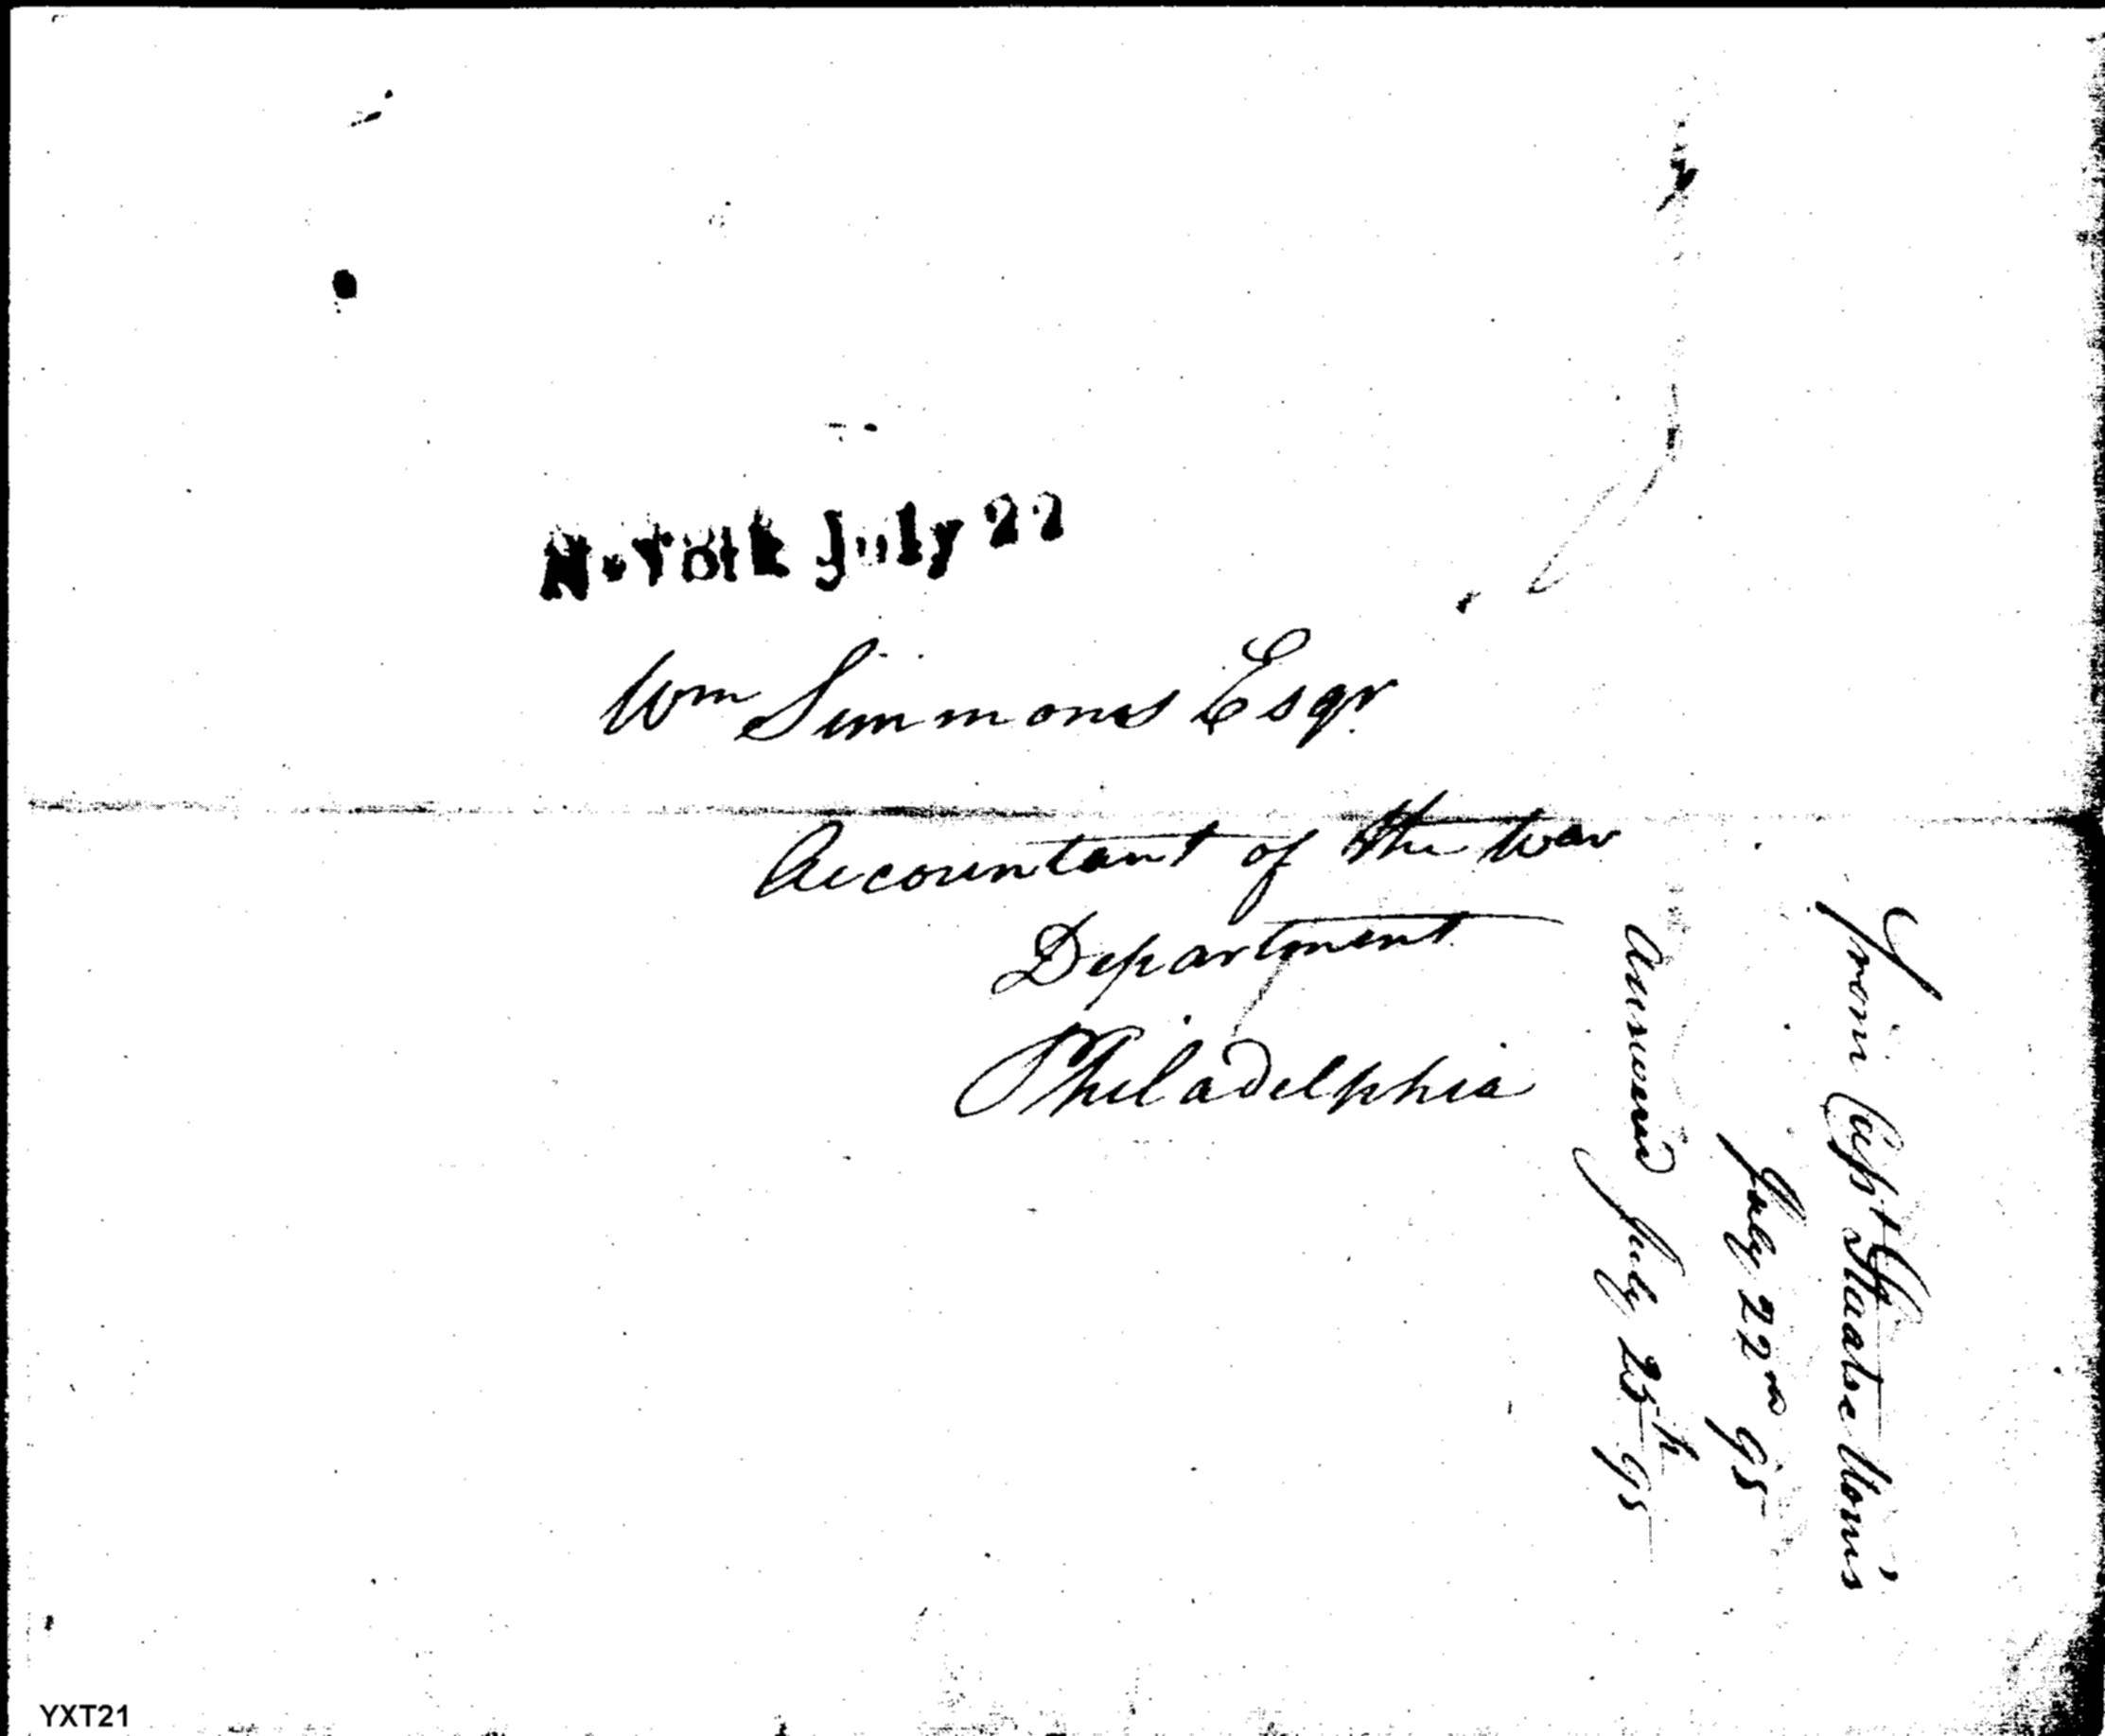 N•York July 22
Wm Simmons Esqr.
Accountant of the War
Department
Philadelphia
From Capt Staats Morris
July 22nd 95
Answered July 25th 95
YXT21